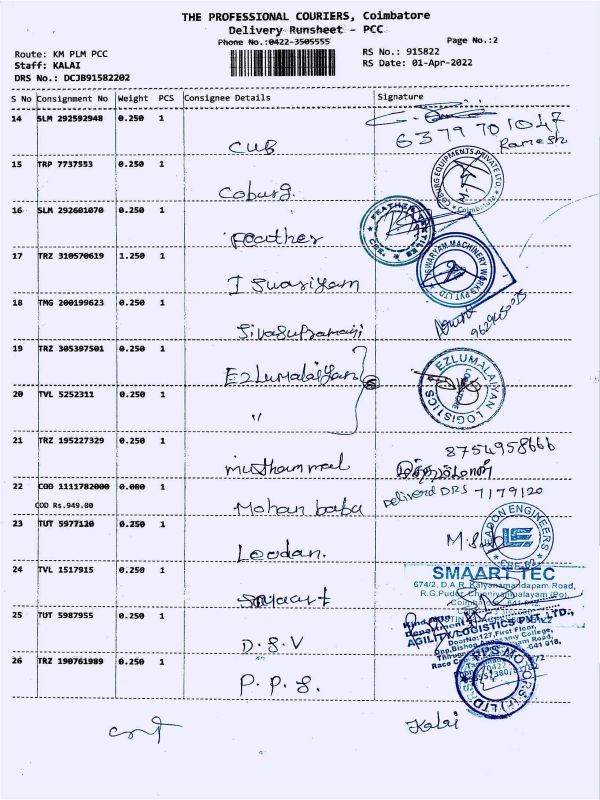 THE PROFESSIONAL COURIERS, Coimbatore
Delivery Runsheet - PCC
Phone No.:0422-3505555
Page No.:2
Route: KM PLM PCC
RS No.: 915822
Staff: KALAI
RS Date: 01-Apr-2022
DRS No.: DCJB91582202
S No Consignment No Weight PCS Consignee Details Signature
14 SLM 292592948 0.250 1
CUB
6379 701047
Ramesh
15 TRP 7737553 0.250 1
Coburg.
COBURG EQUIPMENTS PRIVATE LTD.
Coimbatore
16 SLM 292601070 0.250 1
Feather
FEATHER
CBE.
17 TRZ 310570619 1.250 1
ISWARYAM MACHINERY WORKS PVT LTD
18 TMG 200199623 0.250 1
19 TRZ 305397501 0.250 1
Ezlumalaiyan
EZLUMALAIYAN LOGISTICS
20 TVL 5252311 0.250 1
"
21 TRZ 195227329 0.250 1
muthammal
8754958666
22 COD 1111782000 0.000 1
COD Rs.949.00
Mohan babu
Deliverd DRS 7179120
23 TUT 5977120 0.250 1
Leodan.
ENGINEERS
24 TVL 1517915 0.250 1
SMAART TEC
674/2, D.A.R. Kalyanamandapam Road,
25 TUT 5987955 0.250 1
D.S.V
AGILITY LOGISTICS PVT. LTD.,
DoorNo:127,First Floor,
26 TRZ 190761989 0.250 1
P.P.S.
PPS MOTORS (P) LTD
Kalai